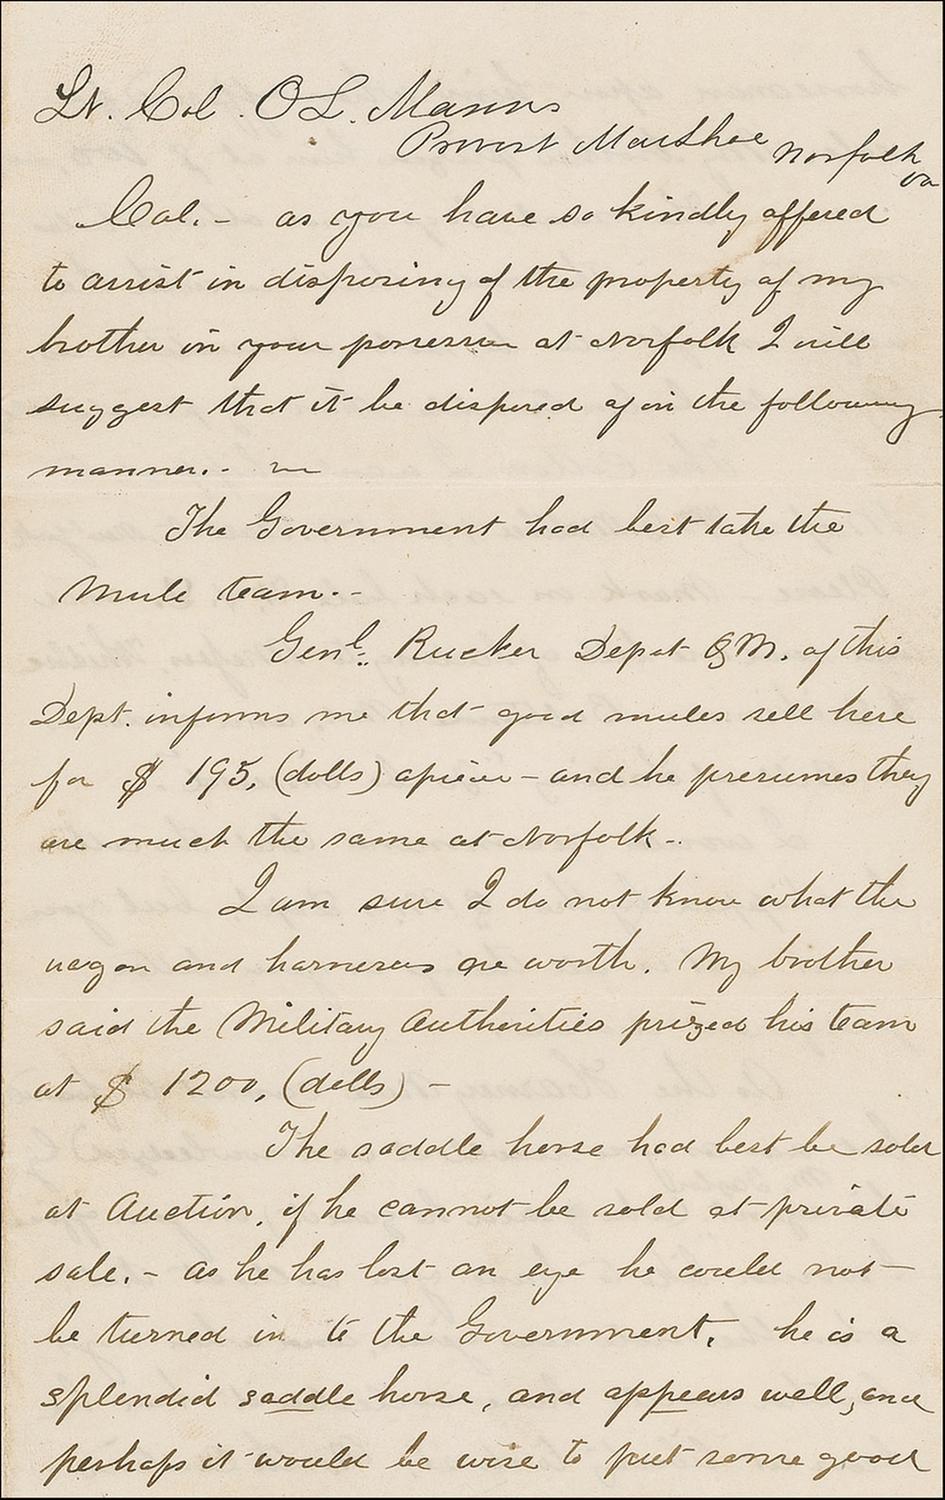 Lt. Col. O L. Manns
Provost Marshal Norfolk
Va
Col. - as you have so kindly offered
to assist in disposing of the property of my
brother in your possession at Norfolk I will
suggest that it be disposed of in the following
manner. -
The Government had best take the
Mule team. -
Genl. Rucker Depot Q M. of this
Dept. informs me that good mules sell here
for $ 195, (dolls) apiece - and he presumes they
are much the same at Norfolk -.
I am sure I do not know what the
wagon and harnesses are worth. My brother
said the Military Authorities prized his team
at $ 1200, (dolls) -
The saddle horse had best be sold
at Auction, if he cannot be sold at private
sale. - as he has lost an eye he could not
be turned in to the Government. he is a
splendid saddle horse, and appears well, and
perhaps it would be wise to put some good